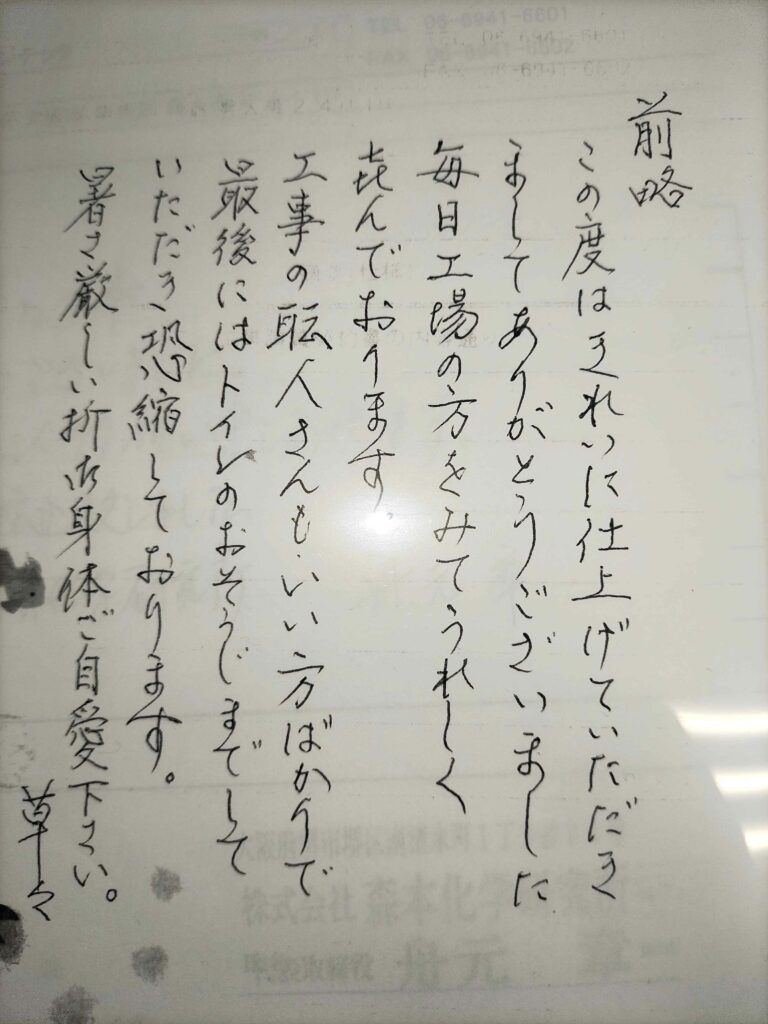 前略
この度はきれいに仕上げていただき
ましてありがとうございました
毎日工場の方をみてうれしく
喜んでおります。
工事の転人さんもいい方ばかりで
最後にはトイレのおそうじまでして
いただき恐縮しております。
暑さ厳しい折御身体ご自愛下さい。
草々
TEL 06-6941-6601
FAX 06-6941-6602
株式会社